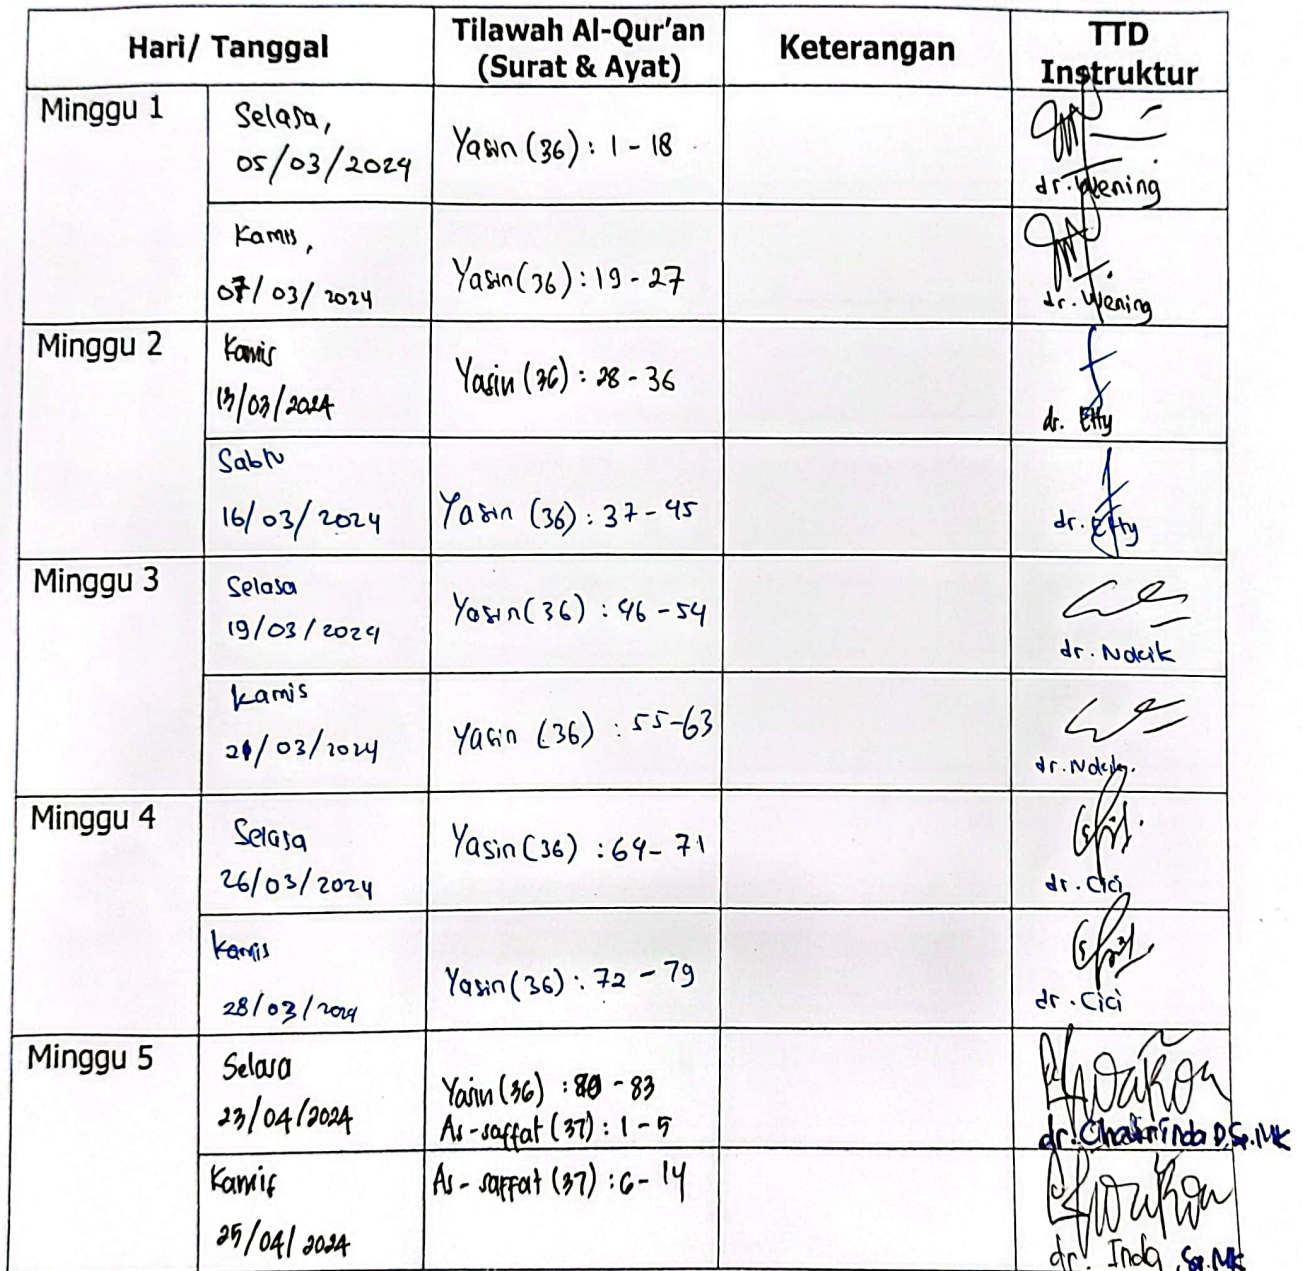 Hari/ Tanggal
Tilawah Al-Qur'an
(Surat & Ayat)
Keterangan
TTD
Instruktur
Minggu 1
Selasa,
05/03/2024
Yasin (36) : 1 - 18
dr. Wening
Kamis,
07/03/2024
Yasin (36) : 19 - 27
dr. Wening
Minggu 2
Kamis
/03/2024
Yasin (36) : 28 - 36
dr. Etty
Sabtu
16/03/2024
Yasin (36) : 37 - 45
dr. Etty
Minggu 3
Selasa
19/03/2024
Yasin (36) : 46 - 54
dr. Nacik
Kamis
21/03/2024
Yasin (36) : 55 - 63
dr. Nacik.
Minggu 4
Selasa
26/03/2024
Yasin (36) : 64 - 71
dr. Cici
Kamis
28/03/2024
Yasin (36) : 72 - 79
dr. Cici
Minggu 5
Selasa
23/04/2024
Yasin (36) : 80 - 83
As-saffat (37) : 1 - 5
dr. D, Sp.MK
Kamis
25/04/2024
As-saffat (37) : 6 - 14
dr. Inda, Sp.MK